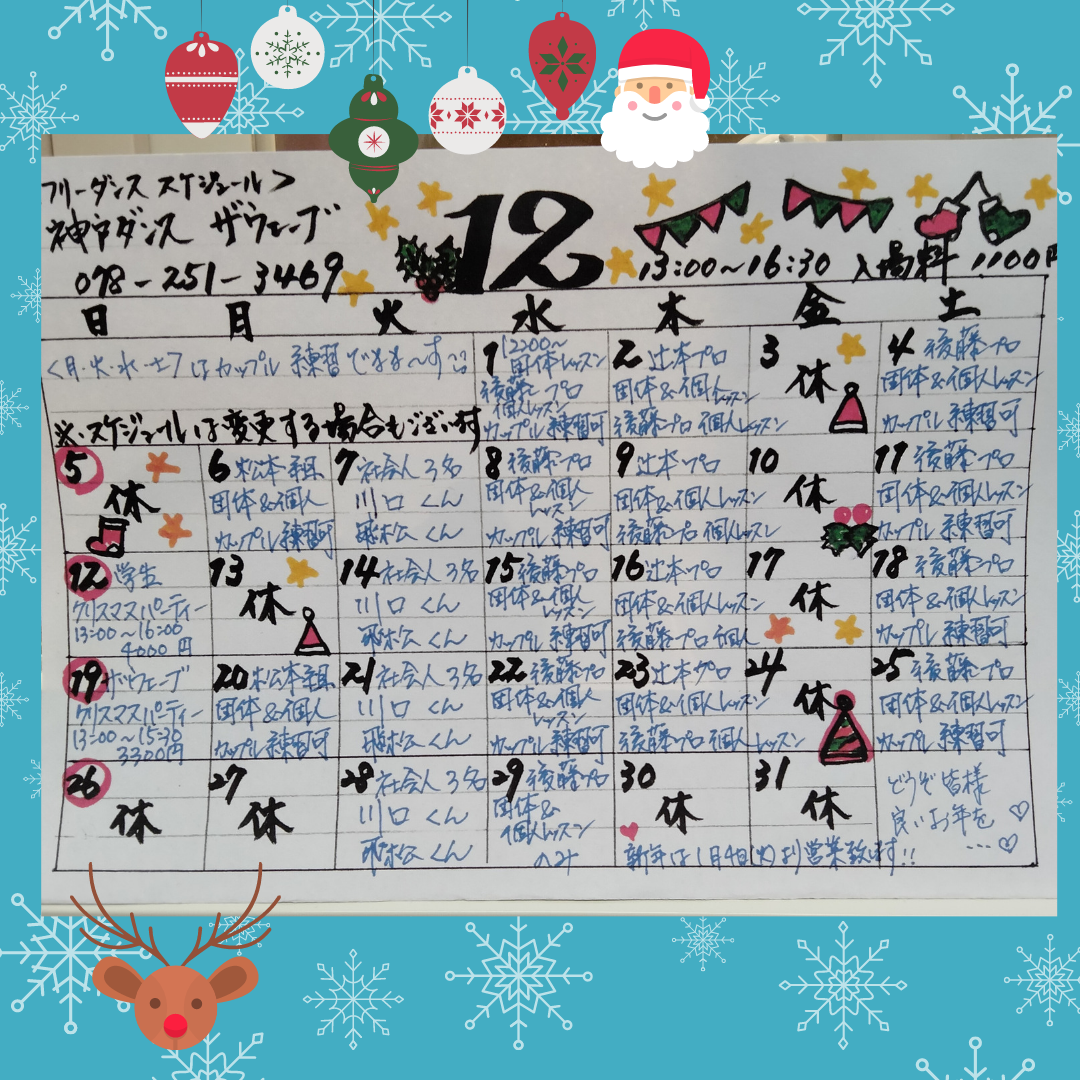 フリーダンス スケジュール>
神戸ダンス ザウェーブ
078-251-3469
12
13:00~16:30 入場料 1100円
日 月 火 水 木 金 土
<月・火・水・土>はカップル練習できま~す
※スケジュールは変更する場合もございます
1 12:00~
団体レッスン
後藤プロ
個人レッスン
カップル練習可
2 辻本プロ
団体&個人レッスン
後藤プロ 個人レッスン
3
休
4 後藤プロ
団体&個人レッスン
カップル練習可
5
休
6 松本組
団体&個人
カップル練習可
7 社会人3名
川口くん
飛松くん
8 後藤プロ
団体&個人
レッスン
カップル練習可
9 辻本プロ
団体&個人レッスン
後藤プロ 個人レッスン
10
休
11 後藤プロ
団体&個人レッスン
カップル練習可
12 学生
クリスマスパーティー
13:00~16:00
4000円
13
休
14 社会人3名
川口くん
飛松くん
15 後藤プロ
団体&個人
レッスン
カップル練習可
16 辻本プロ
団体&個人レッスン
後藤プロ 個人
17
休
18 後藤プロ
団体&個人レッスン
カップル練習可
19 ザウェーブ
クリスマスパーティー
13:00~15:30
3300円
20 松本組
団体&個人
カップル練習可
21 社会人3名
川口くん
飛松くん
22 後藤プロ
団体&個人
レッスン
カップル練習可
23 辻本プロ
団体&個人レッスン
後藤プロ 個人レッスン
24
休
25 後藤プロ
団体&個人レッスン
カップル練習可
26
休
27
休
28 社会人3名
川口くん
飛松くん
29 後藤プロ
団体&
個人レッスン
のみ
30
休
31
休
新年は1月4日(火)より営業致します!!
どうぞ皆様
良いお年を
…